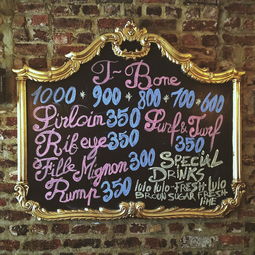 T-Bone
1000 - 900 - 800 - 700 - 600
Sirloin 350
Rib eye 350
Fille Mignon 300
Rump 350
Surf & Turf
350
SPECIAL
DRINKS
lulo lulo-FRESH lulo
BROWN SUGAR FRESH
LIME